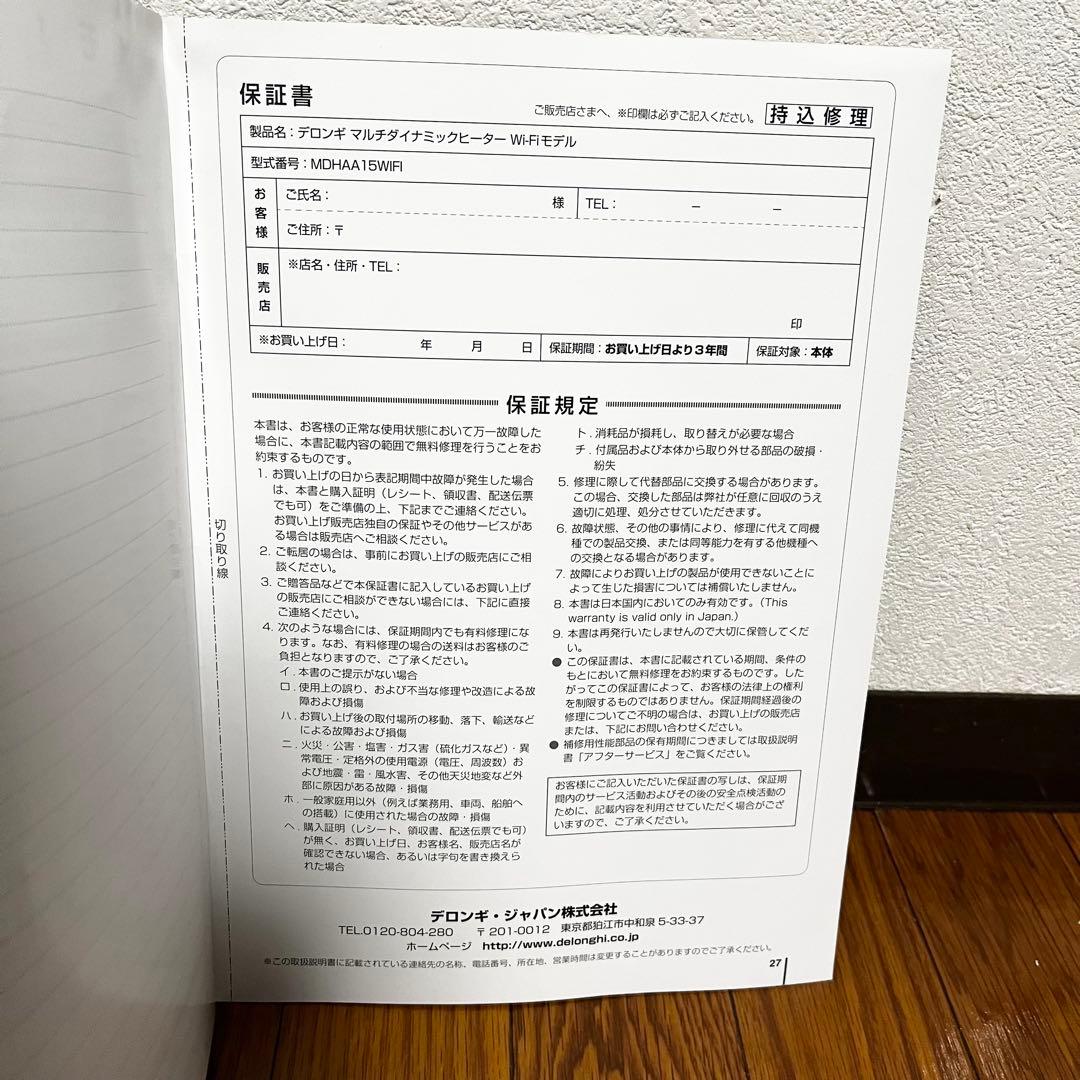 保証書
ご販売店さまへ、※印欄は必ずご記入ください。
持込修理
製品名：デロンギ マルチダイナミックヒーター Wi-Fiモデル
型式番号：MDHAA15WIFI
お客様
ご氏名：　様
TEL：　－　－
ご住所：〒
販売店
※店名・住所・TEL：
印
※お買い上げ日：　年　月　日
保証期間：お買い上げ日より3年間
保証対象：本体
保証規定
本書は、お客様の正常な使用状態において万一故障した
場合に、本書記載内容の範囲で無料修理を行うことをお
約束するものです。
1. お買い上げの日から表記期間中故障が発生した場合
は、本書と購入証明（レシート、領収書、配送伝票
でも可）をご準備の上、下記までご連絡ください。
お買い上げ販売店独自の保証やその他サービスがあ
る場合は販売店へご相談ください。
2. ご転居の場合は、事前にお買い上げの販売店にご相
談ください。
3. ご贈答品などで本保証書に記入しているお買い上げ
の販売店にご相談ができない場合には、下記に直接
ご連絡ください。
4. 次のような場合には、保証期間内でも有料修理にな
ります。なお、有料修理の場合の送料はお客様のご
負担となりますので、ご了承ください。
イ．本書のご提示がない場合
ロ．使用上の誤り、および不当な修理や改造による故
障および損傷
ハ．お買い上げ後の取付場所の移動、落下、輸送など
による故障および損傷
ニ．火災・公害・塩害・ガス害（硫化ガスなど）・異
常電圧・定格外の使用電源（電圧、周波数）お
よび地震・雷・風水害、その他天災地変など外
部に原因がある故障・損傷
ホ．一般家庭用以外（例えば業務用、車両、船舶へ
の搭載）に使用された場合の故障・損傷
ヘ．購入証明（レシート、領収書、配送伝票でも可）
が無く、お買い上げ日、お客様名、販売店名が
確認できない場合、あるいは字句を書き換えら
れた場合
ト．消耗品が損耗し、取り替えが必要な場合
チ．付属品および本体から取り外せる部品の破損・
紛失
5. 修理に際して代替部品に交換する場合があります。
この場合、交換した部品は弊社が任意に回収のうえ
適切に処理、処分させていただきます。
6. 故障状態、その他の事情により、修理に代えて同機
種での製品交換、または同等能力を有する他機種へ
の交換となる場合があります。
7. 故障によりお買い上げの製品が使用できないことに
よって生じた損害については補償いたしません。
8. 本書は日本国内においてのみ有効です。（This
warranty is valid only in Japan.）
9. 本書は再発行いたしませんので大切に保管してくだ
さい。
● この保証書は、本書に記載されている期間、条件の
もとにおいて無料修理をお約束するものです。した
がってこの保証書によって、お客様の法律上の権利
を制限するものではありません。保証期間経過後の
修理についてご不明の場合は、お買い上げの販売店
または、下記にお問い合わせください。
● 補修用性能部品の保有期間につきましては取扱説明
書「アフターサービス」をご覧ください。
お客様にご記入いただいた保証書の写しは、保証期
間内のサービス活動およびその後の安全点検活動の
ために、記載内容を利用させていただく場合がござ
いますので、ご了承ください。
切り取り線
デロンギ・ジャパン株式会社
TEL.0120-804-280　〒201-0012　東京都狛江市中和泉 5-33-37
ホームページ　http://www.delonghi.co.jp
※この取扱説明書に記載されている連絡先の名称、電話番号、所在地、営業時間は変更することがありますのでご了承ください。
27